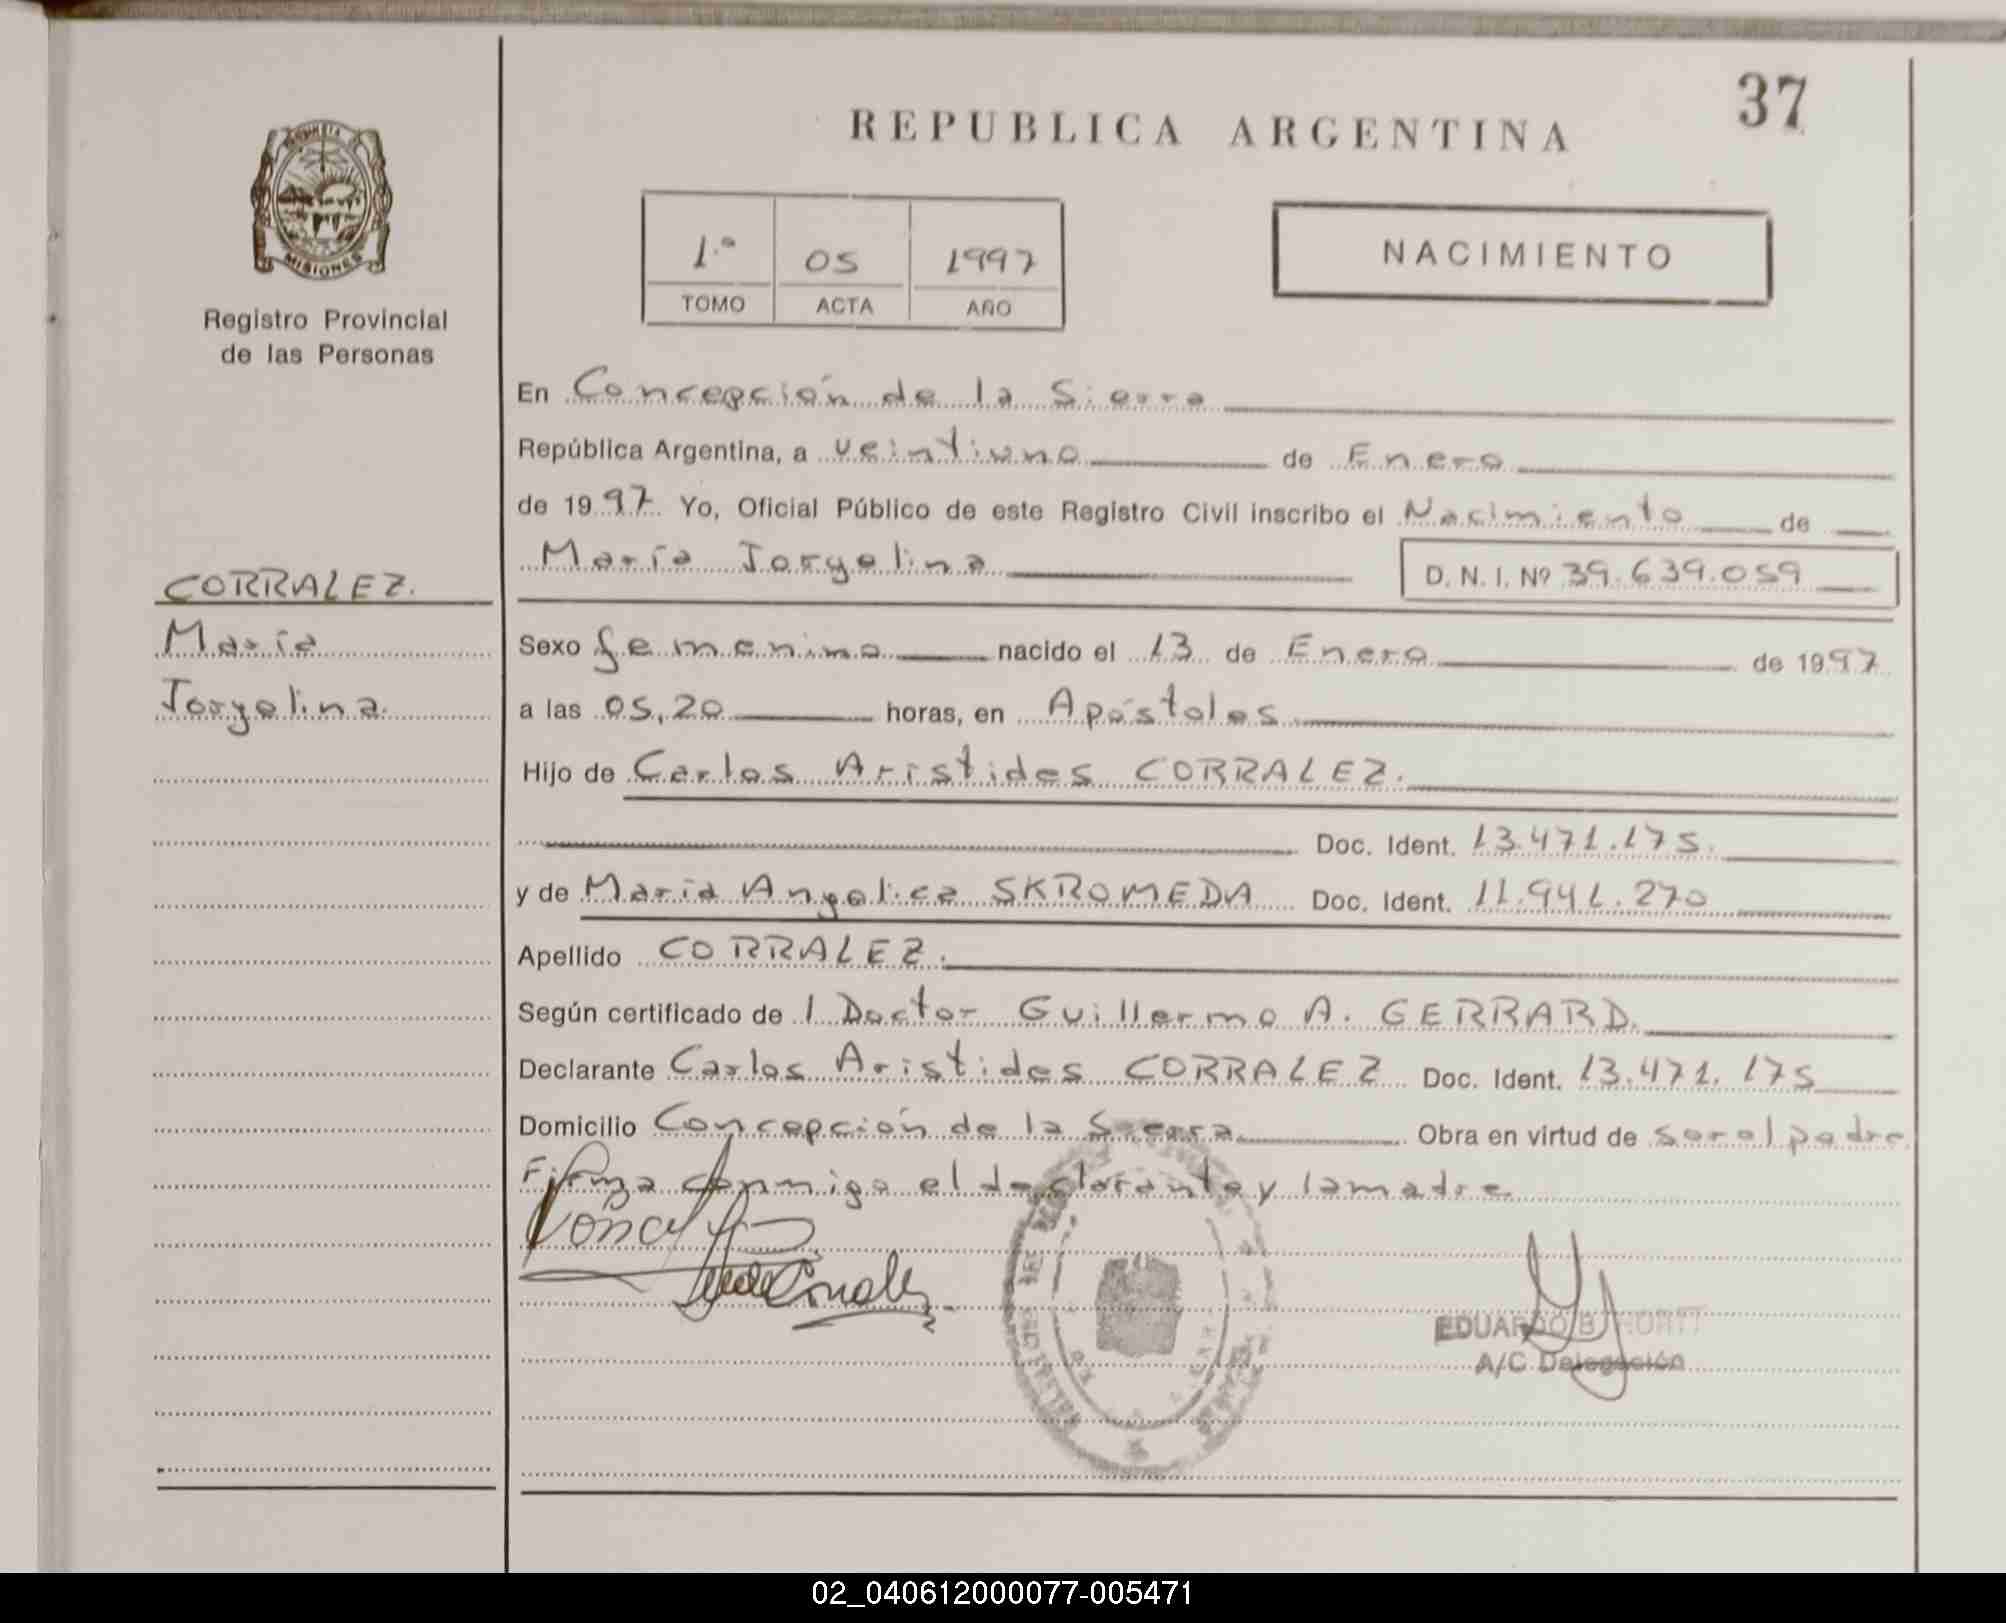 37
REPUBLICA ARGENTINA
MISIONES
Registro Provincial
de las Personas
1.º 05 1997
TOMO ACTA AÑO
NACIMIENTO
En Concepción de la Sierra
República Argentina, a veintiuno de Enero
de 1997 Yo, Oficial Público de este Registro Civil inscribo el Nacimiento de
María Jorgelina D. N. I. Nº 39.639.059
CORRALEZ.
María
Jorgelina.
Sexo femenino nacido el 13 de Enero de 1997
a las 05,20 horas, en Apóstoles
Hijo de Carlos Arístides CORRALEZ.
Doc. Ident. 13.471.175.
y de María Angelica SKROMEDA Doc. Ident. 11.941.270
Apellido CORRALEZ.
Según certificado de l Doctor Guillermo A. GERRARD.
Declarante Carlos Aristides CORRALEZ Doc. Ident. 13.471.175
Domicilio Concepción de la Sierra Obra en virtud de ser el padre
Firma conmigo el declarante y la madre
EDUARDO B.
A/C Delegación
02_040612000077-005471